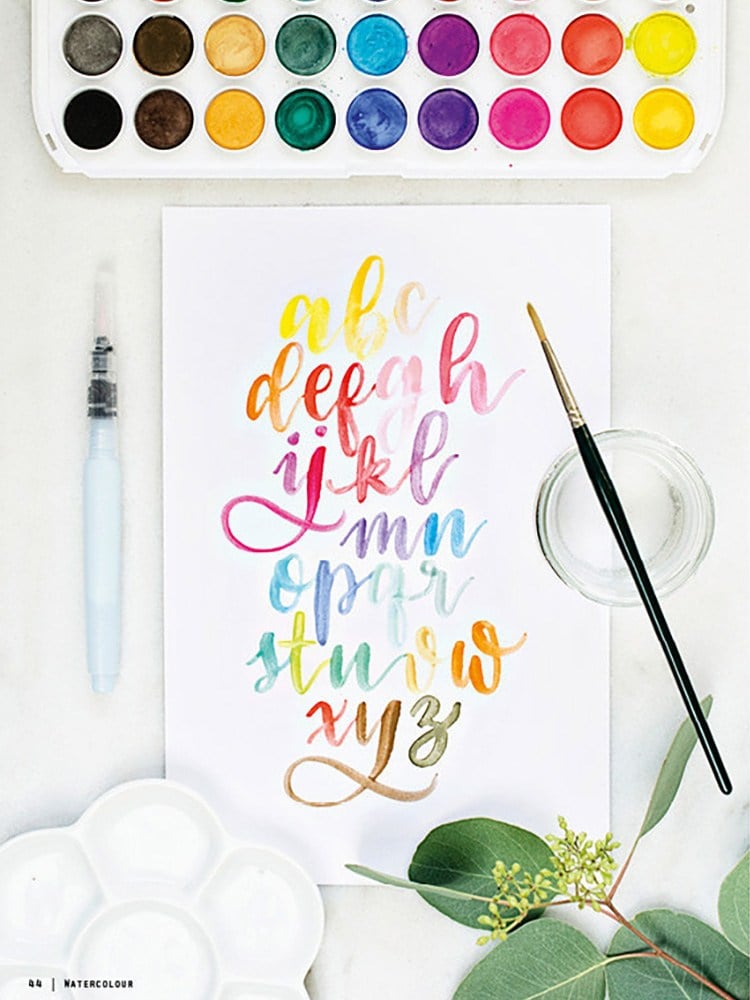 abc
defgh
ijkl
mn
opqr
stuvw
xyz
44 | WATERCOLOUR